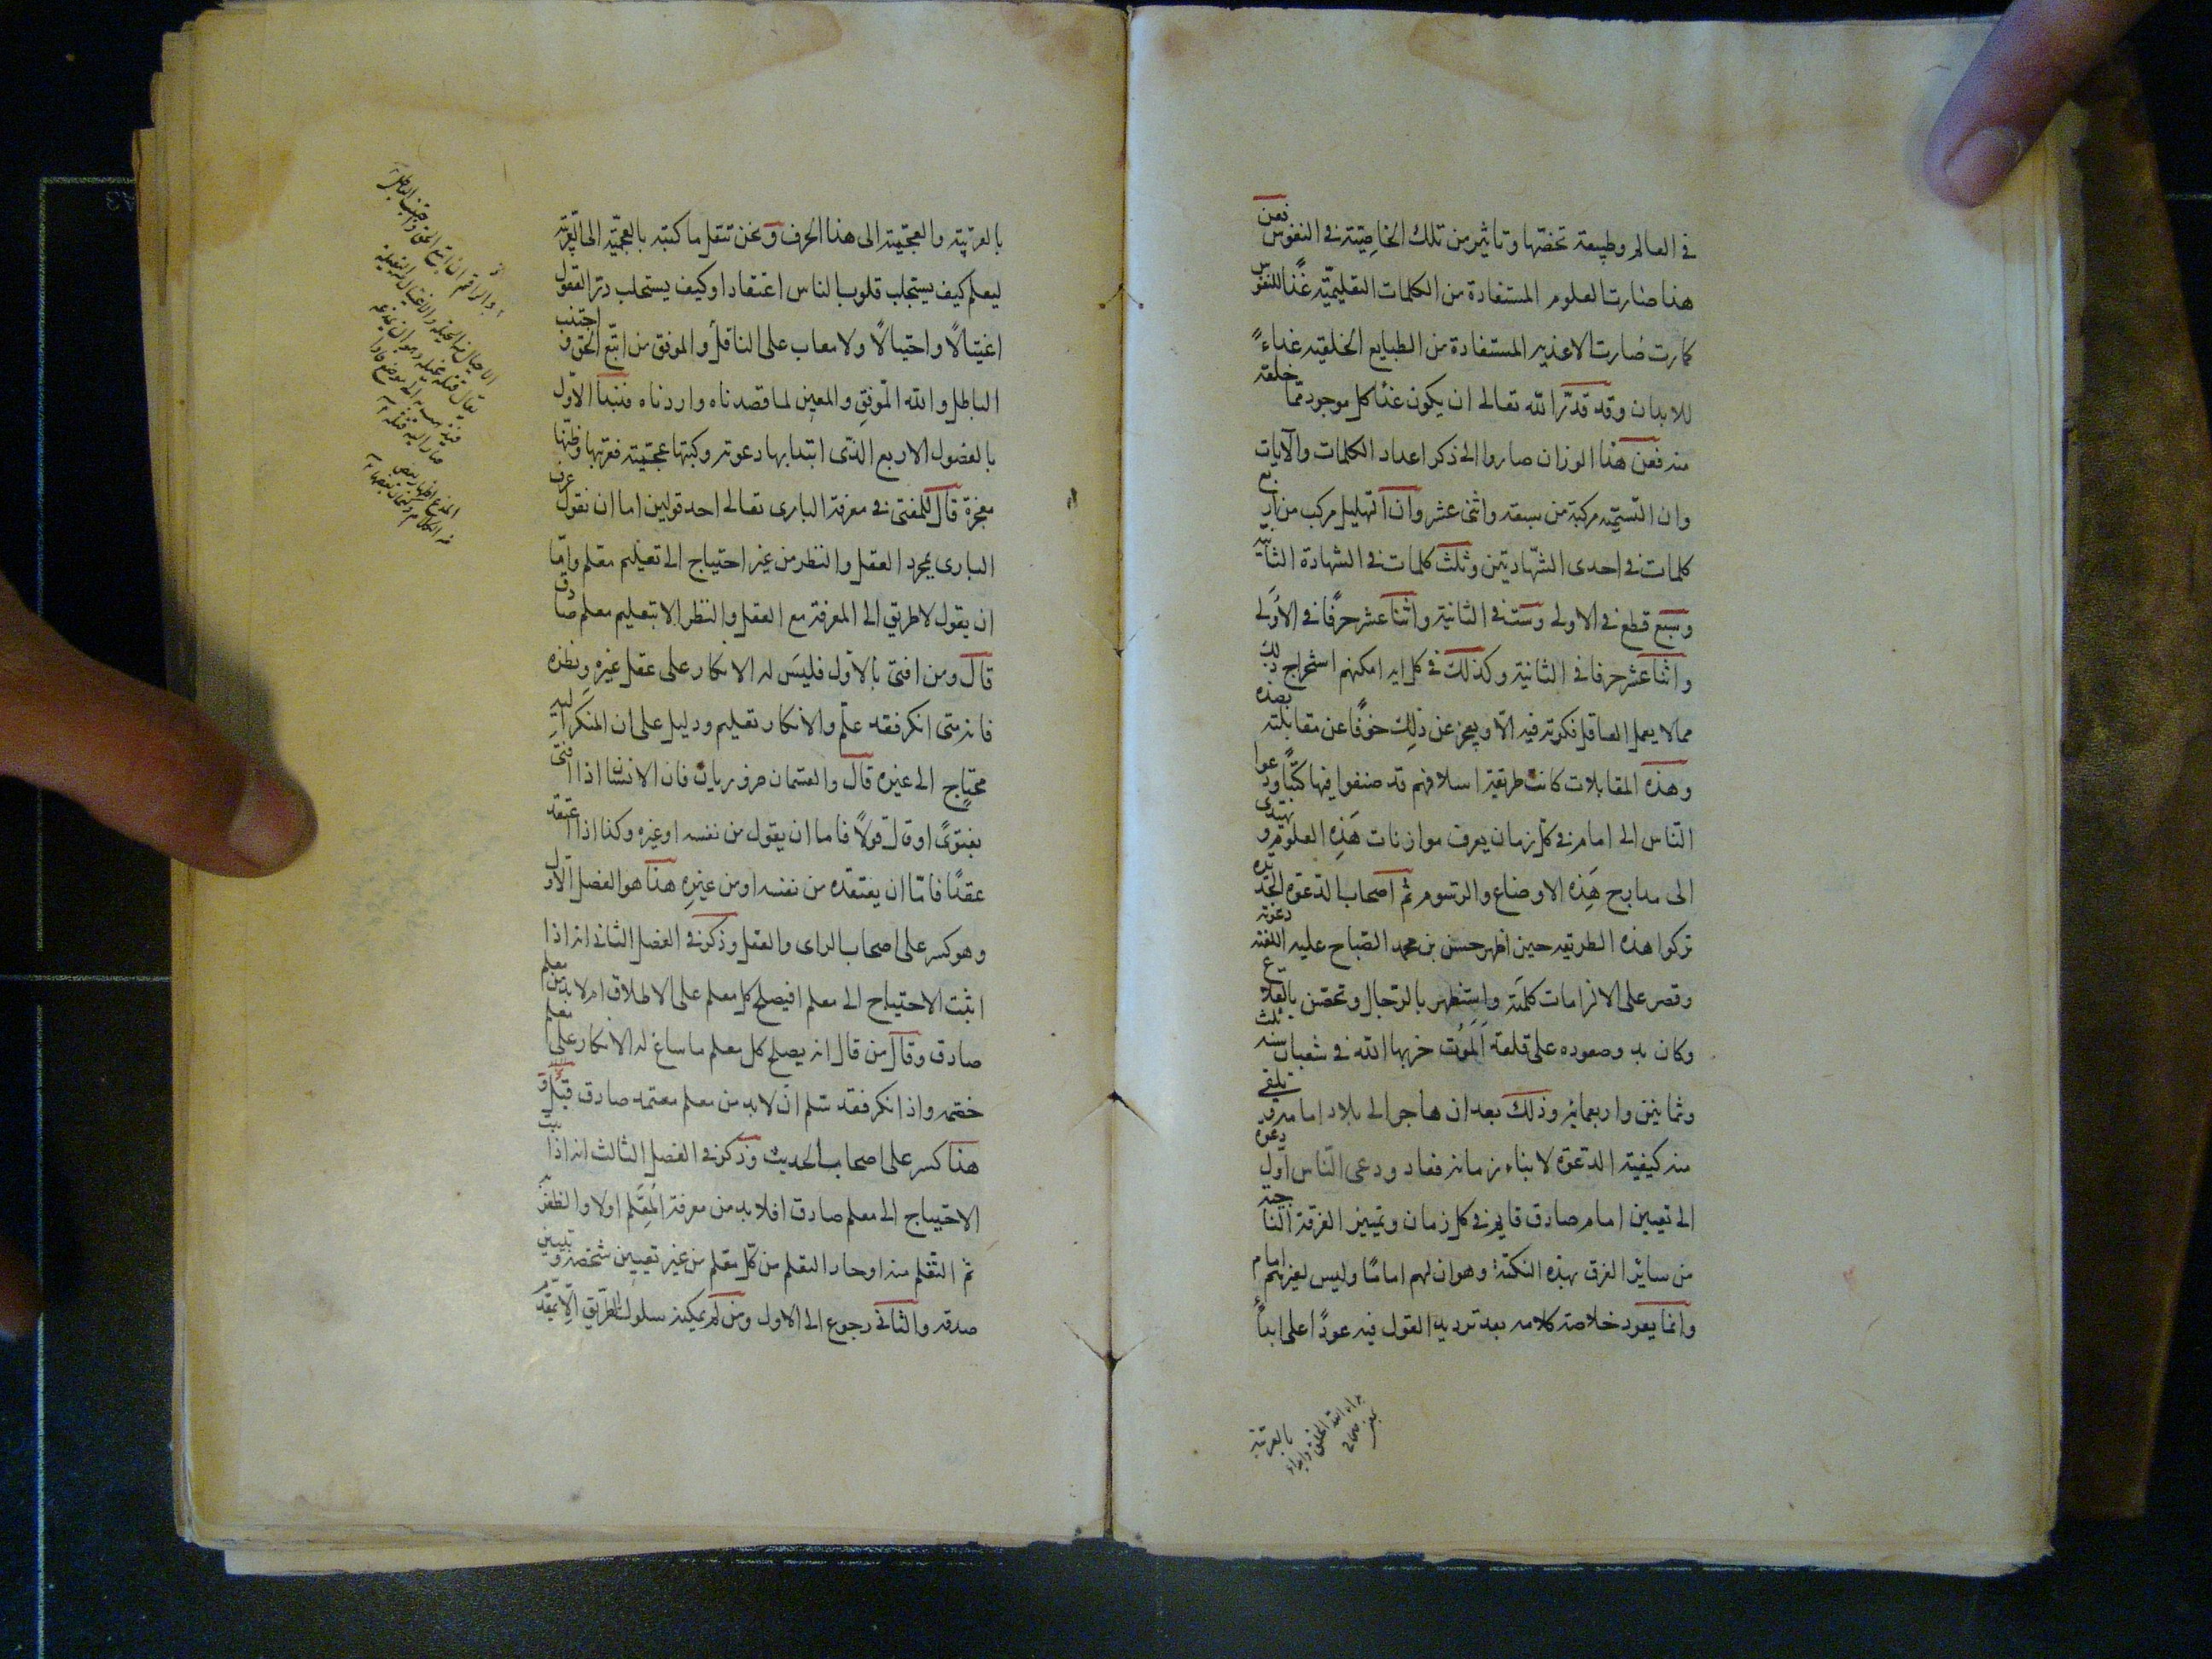 في العالم وطبيعة تخصّها وتاثير من تلك الخاصيّته في النفوس فعن
هذا صارت العلوم المستفادة من الكلمات التعليميّة غذًا للنفوس
كما صارت الاغذيه المستفادة من الطبايع الخلقيه غذاءً
للابدان وقد قدّر الله تعالى ان يكون غذا كل موجود ممّا خلقه
منه فعن هذا الوزان صاروا الى ذكر اعداد الكلمات والآيات
وان التسميّه مركبة من سبعه واثنى عشر وان التهليل مركب من اربع
كلمات في احدى الشهادتين وثلث كلمات في الشهادة الثانيه
وسبع قطع في الاولى وست في الثانية واثنا عشر حرفًا في الاولى
واثنا عشر حرفا في الثانية وكذلك في كل ايه امكنهم استخراج ذلك
مما لا يعمل العاقل فكرته فيه الّا ويعجز عن ذلك خوفًا عن مقابلته بضده
وهذه المقابلات كانت طريقة اسلافهم قد صنفوا فيها كتبًا ودعوا
النّاس الى امام في كل زمان يعرف موازنات هذِه العلوم ويهتدى
الى مدارج هَذِه الاوضاع والرسوم ثم اصحاب الدّعوة الجديّده
تركوا هذه الطريقه حين اظهر حسن بن محمد الصّباح عليه اللعنه دعوته
وقصر على الالزامات كلمَته واستظهر بالرّجال وتحصّن بالقلاع
وكان بدو صعوده على قلعة المَوت خربها الله في شعبان سنه ثلث
وثمانين واربعمايه وذلك بعد ان هاجر الى بلاد امامه وتلقى
منه كيفية الدّعوة لابناء زمانه فعاد ودعى النّاس اوّل دعوة
الى تعيين امام صادق قايم في كل زمان وتمييز الفرقة الناجيه
من ساير الفرق بهذه النكتة وهو ان لهم امامًا وليس لغيرهم امام
وانما يعود خلاصة كلامه بعد ترديد القول فيه عودًا على ابدأ
بالعربّية
بالعربّية والعجميّة الى هذا الحرف ونحن ننقل ما كتبه بالعجميّة الى العربّية
ليعلم كيف يستجلب قلوب الناس اعتقادا وكيف يستحلب درّ العقول
اغتيالًا واحتيالًا ولا معاب على الناقل والموفق من اتبّع الحق واجتنب
الباطل والله الموفق والمعين لما قصدناه واردناه فنبدأ الاوّل
بالفصول الاربع الذّى ابتدا بها دعوته وكتبها عجميّة فعربها وظنّها
معجزة قال للمفتى في معرفة البارى تعالى احد قولين اما ان نقول عرف
البارى بمجرد العقل والنظر من غير احتياج الى تعليم معلم وامّا
ان يقول لا طريق الى المعرفة مع العقل والنظر الا بتعليم معلم صادق
قال ومن افتى بالاوّل فليسَ له الانكار على عقل غيره ونظره
فانه متى انكر فقد علّم والانكار تعليم ودليل على ان المنكَر عليه
محتاج الى غيره قال والقسمان ضروريان فان الانسٰان اذا افتى
بفتوىً او قال قولًا فاما ان يقول من نفسه او غيره وكذا اذا اعتقد
عقدًا فامّا ان يعتقده من نفسه او من غيره هذا هو الفصل الاول
وهو كسر على اصحاب الراى والعقل وذكر في الفصل الثانى انه اذا
اثبت الاحتياج الى معلم افيصلح كل معلم على الاطلاق ام لا بد من معلم
صادق وقال من قال انه يصلح كل معلم ما ساغ له الانكار على معلم
خصمه واذا انكر فقد سّلم انّ لا بد من معلم معتمد صادق قيل و
هذا كسر على اصحاب الحديث وذكر في الفصل الثالث انه اذا ثبت
الاحتياج الى معلم صادق افلا بد من معرفة المعَلم اولا والظفر به
ثم التّعلم منه او جاز التعلم من كل معلم من غير تعيين شخصه وتبيين
صدقه والثانى رجوع الى الاول ومن لم يمكنه سلوك الطّريق الّا بمقدّم